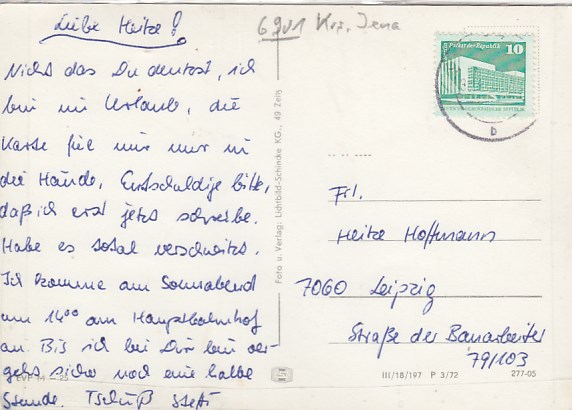 Liebe Heike!
6901 Krs. Jena
Nicht das Du denkst, ich
bin im Urlaub, die
Karte fiel mir nur in
die Hände. Entschuldige bitte,
daß ich erst jetzt schreibe.
Habe es total verschwitzt.
Ich komme am Sonnabend
um 14⁰⁰ am Hauptbahnhof
an. Bis ich bei Dir bin ver-
gehts sicher noch eine halbe
Stunde. Tschüß Steffi
Foto u. Verlag: Lichtbild-Schincke KG., 49 Zeitz
Palast der Republik
10
Frl.
Heike Hoffmann
7060 Leipzig
Straße der Bauarbeiter
79/103
III/18/197 P 3/72 277-05